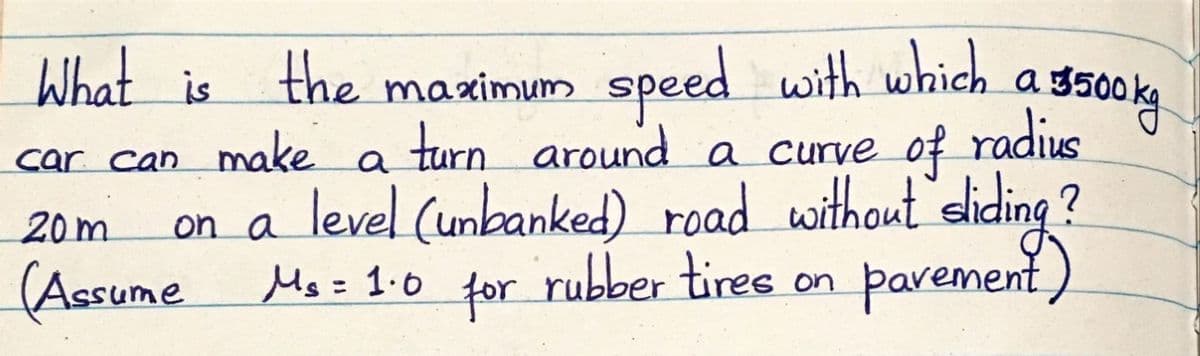 What is the maximum speed with which a 3500 kg
car can make a turn around a curve of radius
20m on a level (unbanked) road without sliding?
(Assume Ms = 1.0 for rubber tires on pavement)